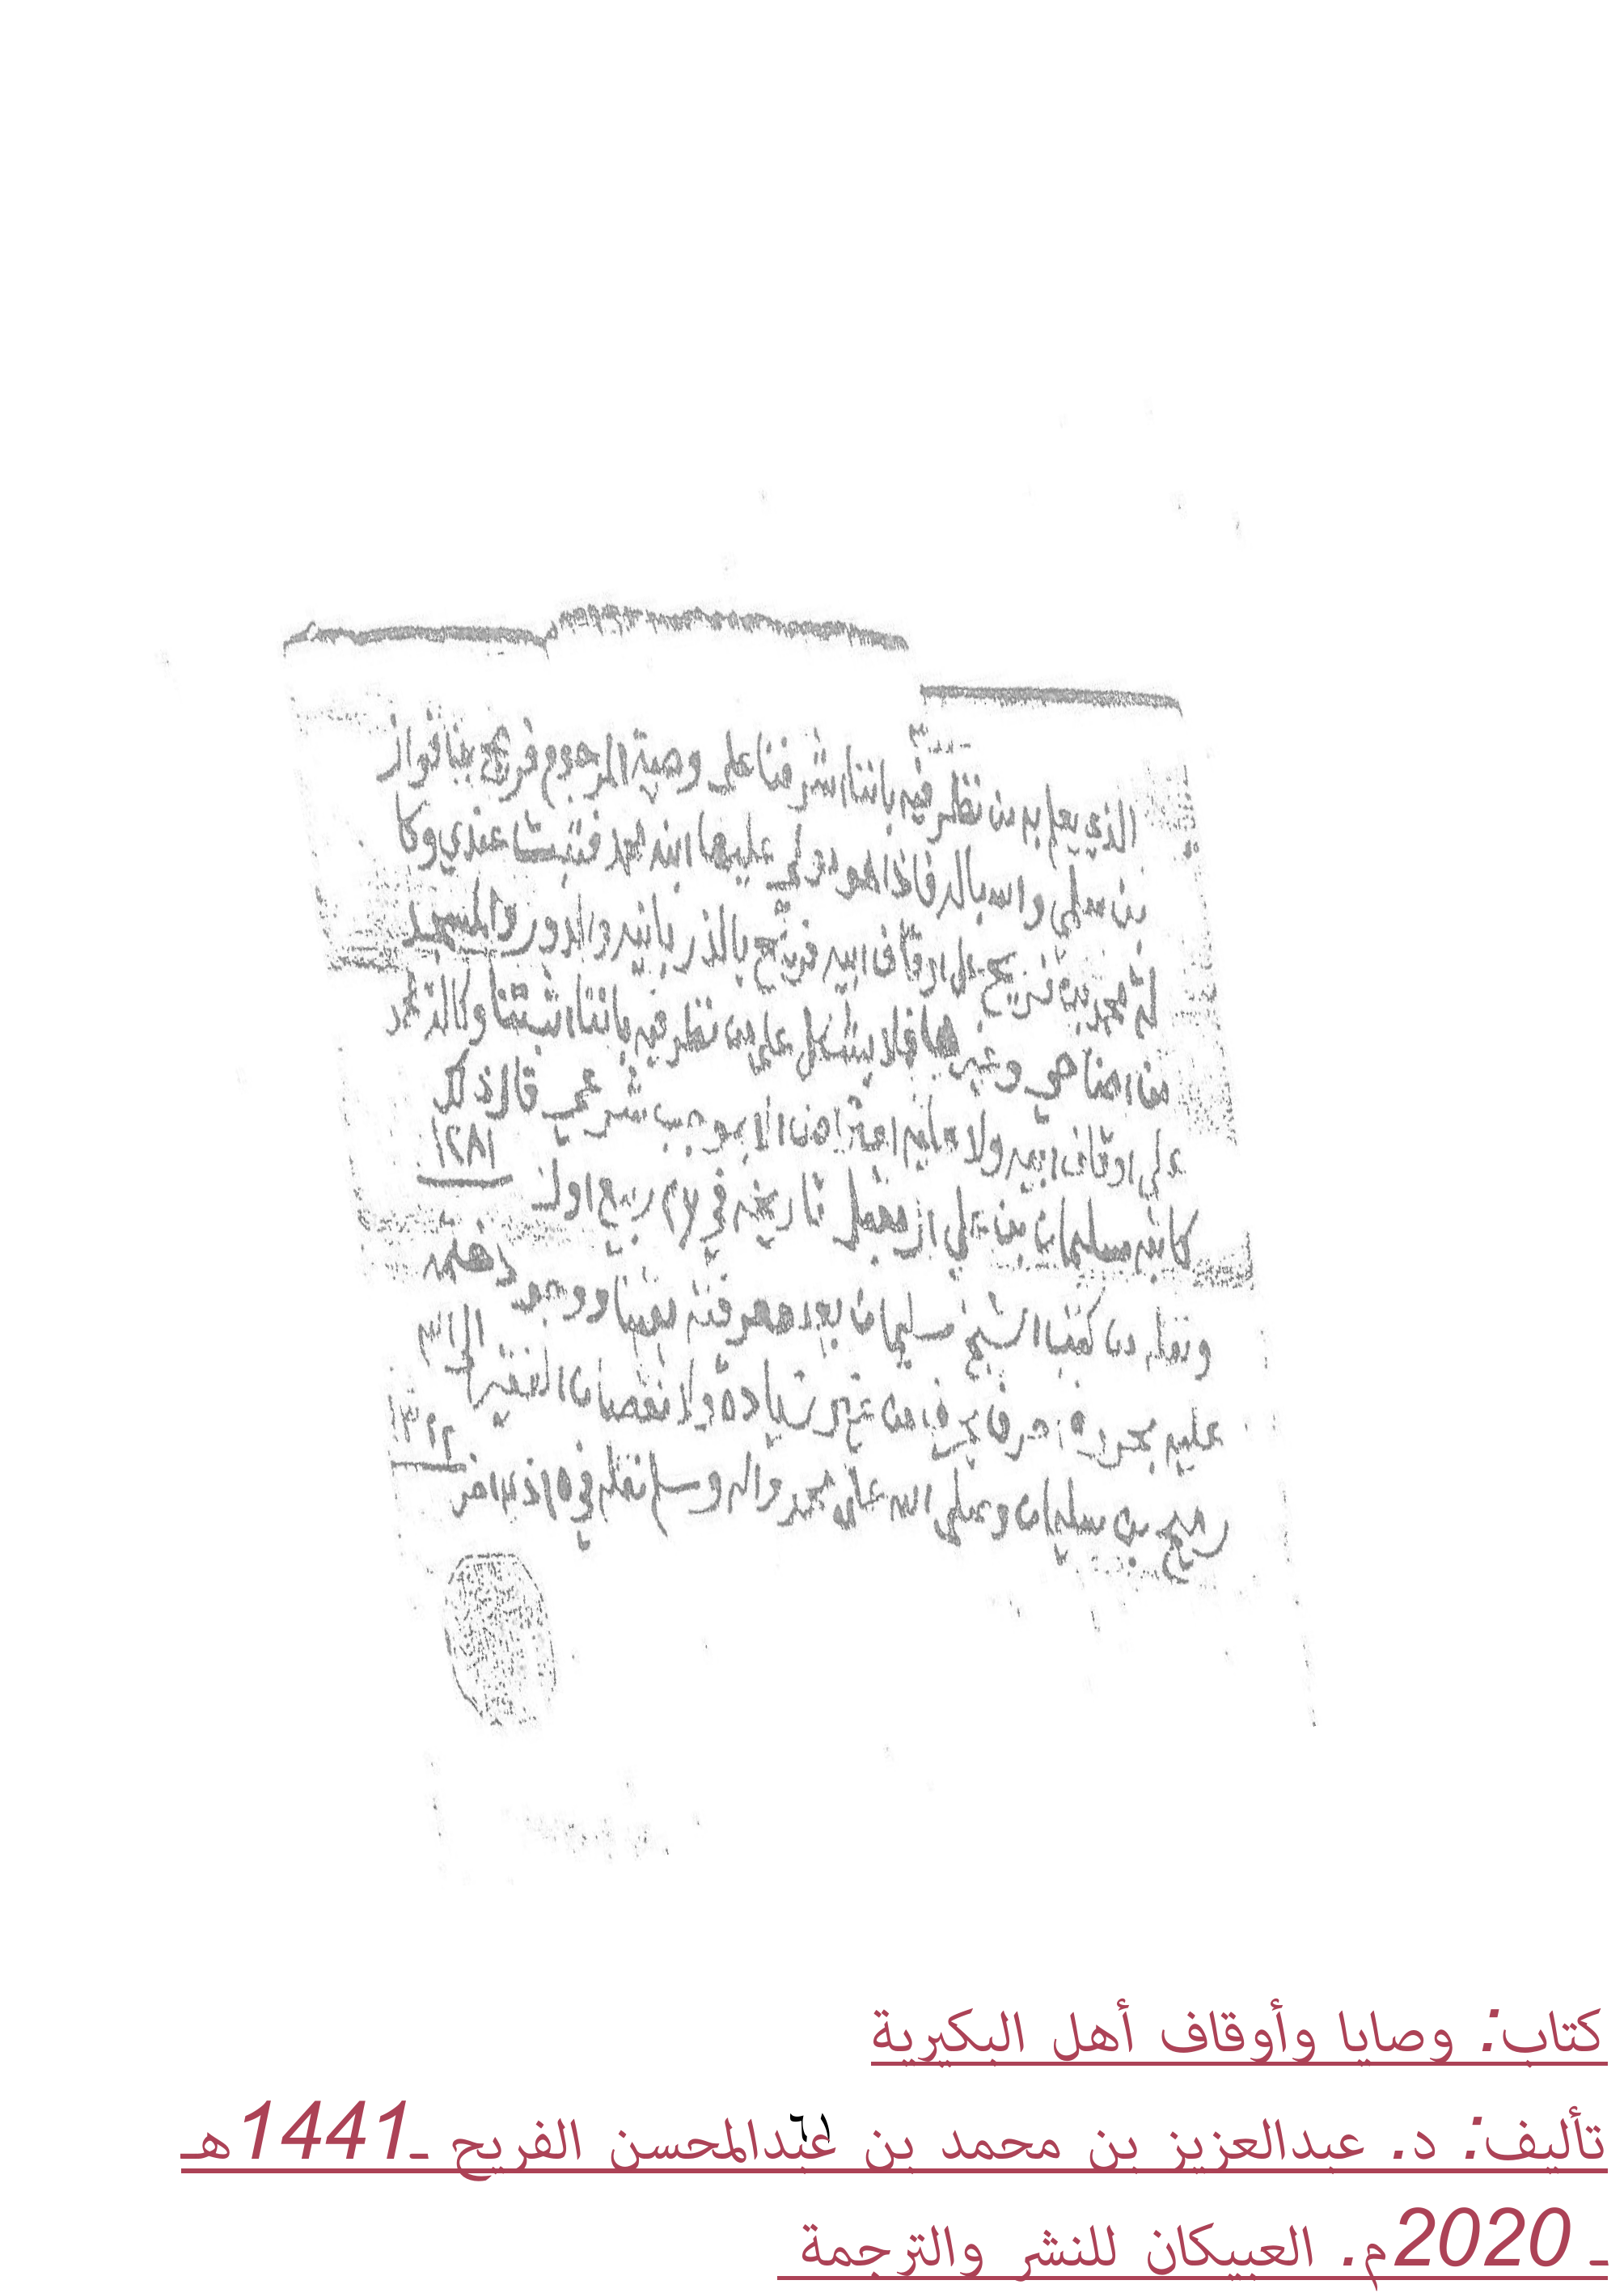 الذي يعلم به من نظر فيه باننا اشرفنا على وصية المرحوم فريح بن فواز
بن علي واسبالد فاذا هو مولي عليها ابنه محمد فثبت عندي وكا
لة محمد بن فريح على اوقاف ابيه فريح بالذربانيه والدور والمسجد
من اضاحي وغيرها فلا يشكل على من نظر فيه باننا اثبتنا وكالة محمد
على اوقاف ابيه ولا عليه اعتراض الا بموجب شرعي قال ذلك
كاتبه سليمان بن علي المقبل تاريخه في ربيع اول ١٢٨١
ونقله من كتب الشيخ سليمان بعد معرفته يقينا ووجود ختمه
عليه بحروفه حرف بحرف من غير زيادة ولا نقصان الفقير الى الله
رميح بن سليمان وصلى الله على محمد واله وسلم نقله في
كتاب: وصايا وأوقاف أهل البكيرية
تأليف: د. عبدالعزيز بن محمد بن عبدالمحسن الفريح ـ1441هـ
ـ 2020م. العبيكان للنشر والترجمة
٦١